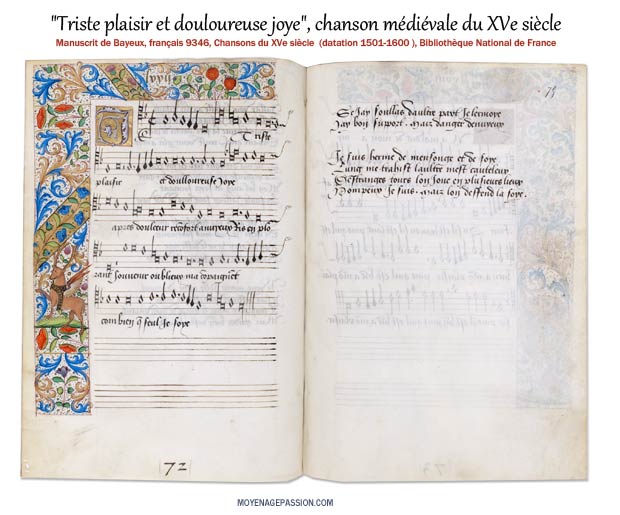 "Triste plaisir et douloureuse joye", chanson médiévale du XVe siècle
Manuscrit de Bayeux, français 9346, Chansons du XVe siècle (datation 1501-1600 ), Bibliothèque National de France
Triste
plaisir et doulloureuse Joye
apres doulceur reconfort ennuyeux Ris en plo
rant souvenir oublieux ma
combien q seul Je soye
72
73
Se Jay soullas daultre part Je lermoye
Jay bon suport . Mais danger
Je suis berme de mensonge et de foye
Lung me trahist laultre mest cauteleux
Destranges tours lon Joue en plusieurs lieux
Pompeux Je suis . Mais lon deffend la soye .
MOYENAGEPASSION.COM